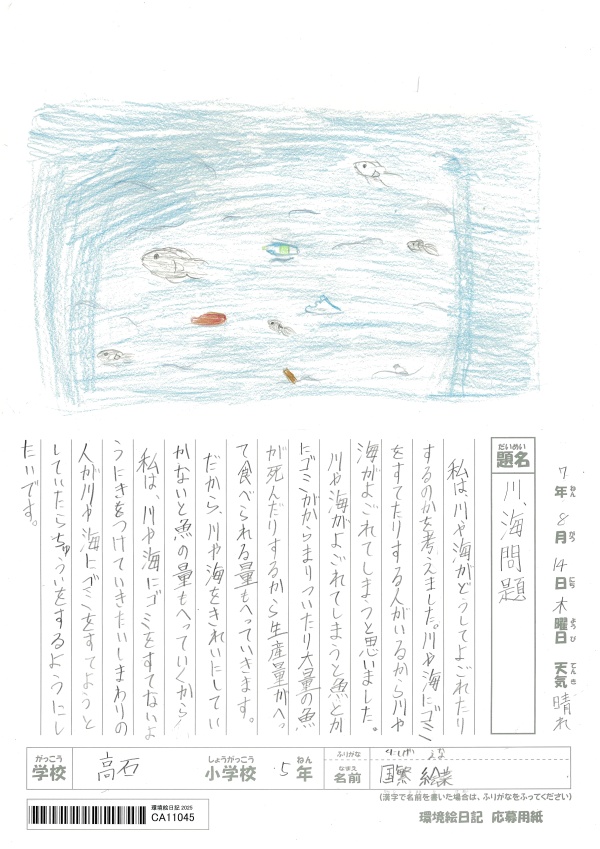 7年ねん8月がつ14日にち木曜日ようび 天気てんき晴れ
題名だいめい
川、海問題
私は、川や海がどうしてよごれたり
するのかを考えました。川や海にゴミ
をすてたりする人がいるから川や
海がよごれてしまうと思いました。
川や海がよごれてしまうと魚とか
にゴミがからまりついたり大量の魚
が死んだりするから生産量がへっ
て食べられる量もへっていきます。
だから、川や海をきれいにしてい
かないと魚の量もへっていくから
私は、川や海にゴミをすてないよ
うにきをつけていきたいしまわりの
人が川や海にゴミをすてようと
していたらちゅういをするようにし
たいです。
がっこう
学校
高石
しょうがっこう
小学校
5
ねん
年
ふりがな
くにしげ えな
なまえ
名前
国繁 絵菜
(漢字で名前を書いた場合は、ふりがなをふってください)
環境絵日記 2025
CA11045
環境絵日記 応募用紙